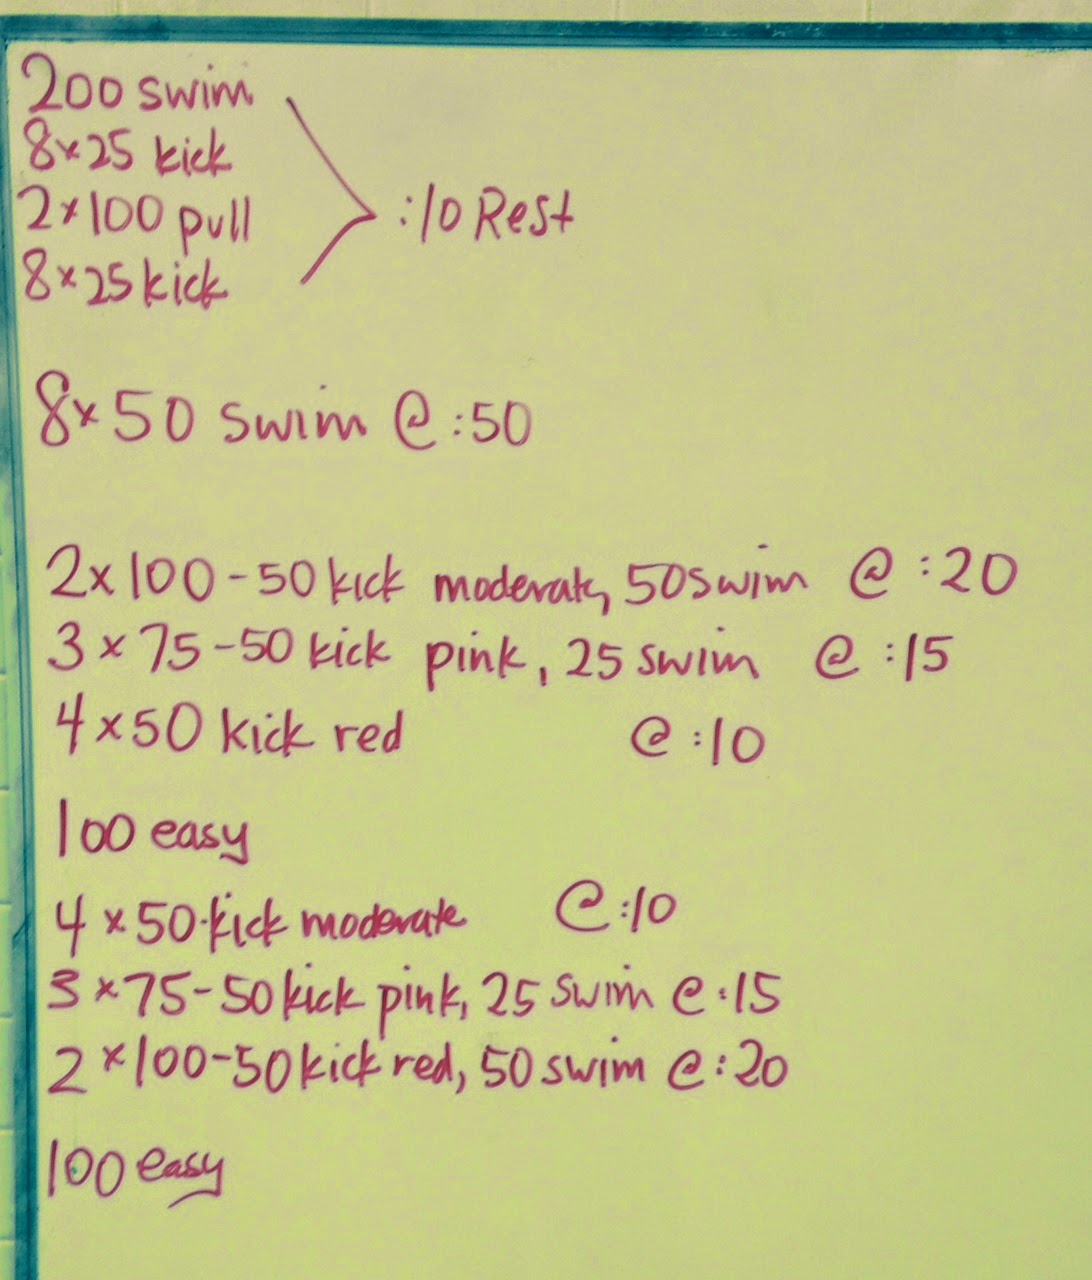 200 swim
8x25 kick
2x100 pull
8x25 kick
:10 Rest
8x50 swim @ :50
2x100-50 kick moderate, 50 swim @ :20
3x75-50 kick pink, 25 swim @ :15
4x50 kick red @ :10
100 easy
4x50-kick moderate @ :10
3x75-50 kick pink, 25 swim @ :15
2x100-50 kick red, 50 swim @ :20
100 easy